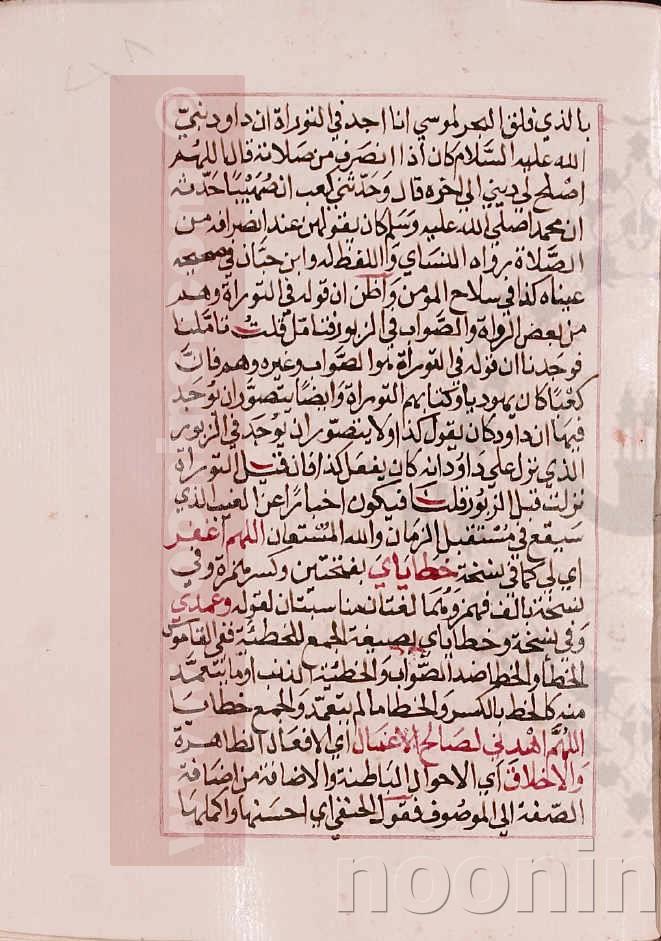 بالذي فلق البحر لموسي انا اجد في التوراة ان داود نبيّ
الله عليه السَّلام كان اذا انصرف من صلاته قال اللهم
اصلح لي ديني الي اخره قال وَحَدّثني كعب ان صُهَيْبًا حَدّثه
ان محمدا صلي الله عليه وَسَلم كان يقولهن عند انصرافه من
الصَّلاة رواه النساي وَاللفظ له وابن حبّان في صحيحه
عيناه كذا في سلاح المؤمن وَاظن ان قوله في التوراة وهم
من بعض الرواة والصَّواب في الزبور فتامّل قلت تامَّلنا
فوجدنا ان قوله في التورَاة هو الصَّواب وغيره وهم فانّ
كعْبًا كان يهوديا وكتابهم التوراة وَايضًا يتصوّر ان يُوجَد
فيها ان داود كان يقول كذا ولا يتصوّر ان يوُجَد في الزبور
الذي نزل علي دَاود انه كان يفعل كذا فان قيل التوراة
نزلت قبل الزبور قلنا فيكون اخبارًا عن الغيب الذي
سَيقع في مُسْتقبل الزمان وَالله المُسْتعان اللهم اغفر
اي لي كما في نسخة خطاياي بفتحتين وكسر همزة وفي
نسخة بالف فهمز وَهُما لغتان هنا سبتان لقوله وعمدي
وَفي نسخة وخطاياي بصيغة الجمع للخطيّة ففي القاموس
الخطأ والخطا ضد الصَّواب وَالخطيئة الذنب او ما يتعمّد
منه كالخطء بالكسر وَالخطا ما لم يتعمّد وَالجمع خطايا
اللهُمَّ اهْدني لصَالح الاعْمَال اي الافعال الظاهرة
وَالاخلاق اي الاحوال الباطنة والاضافة من اضافة
الصّفة الي الموصُوف فقول الحنفي اي احسَنها وَاكملها
noonin